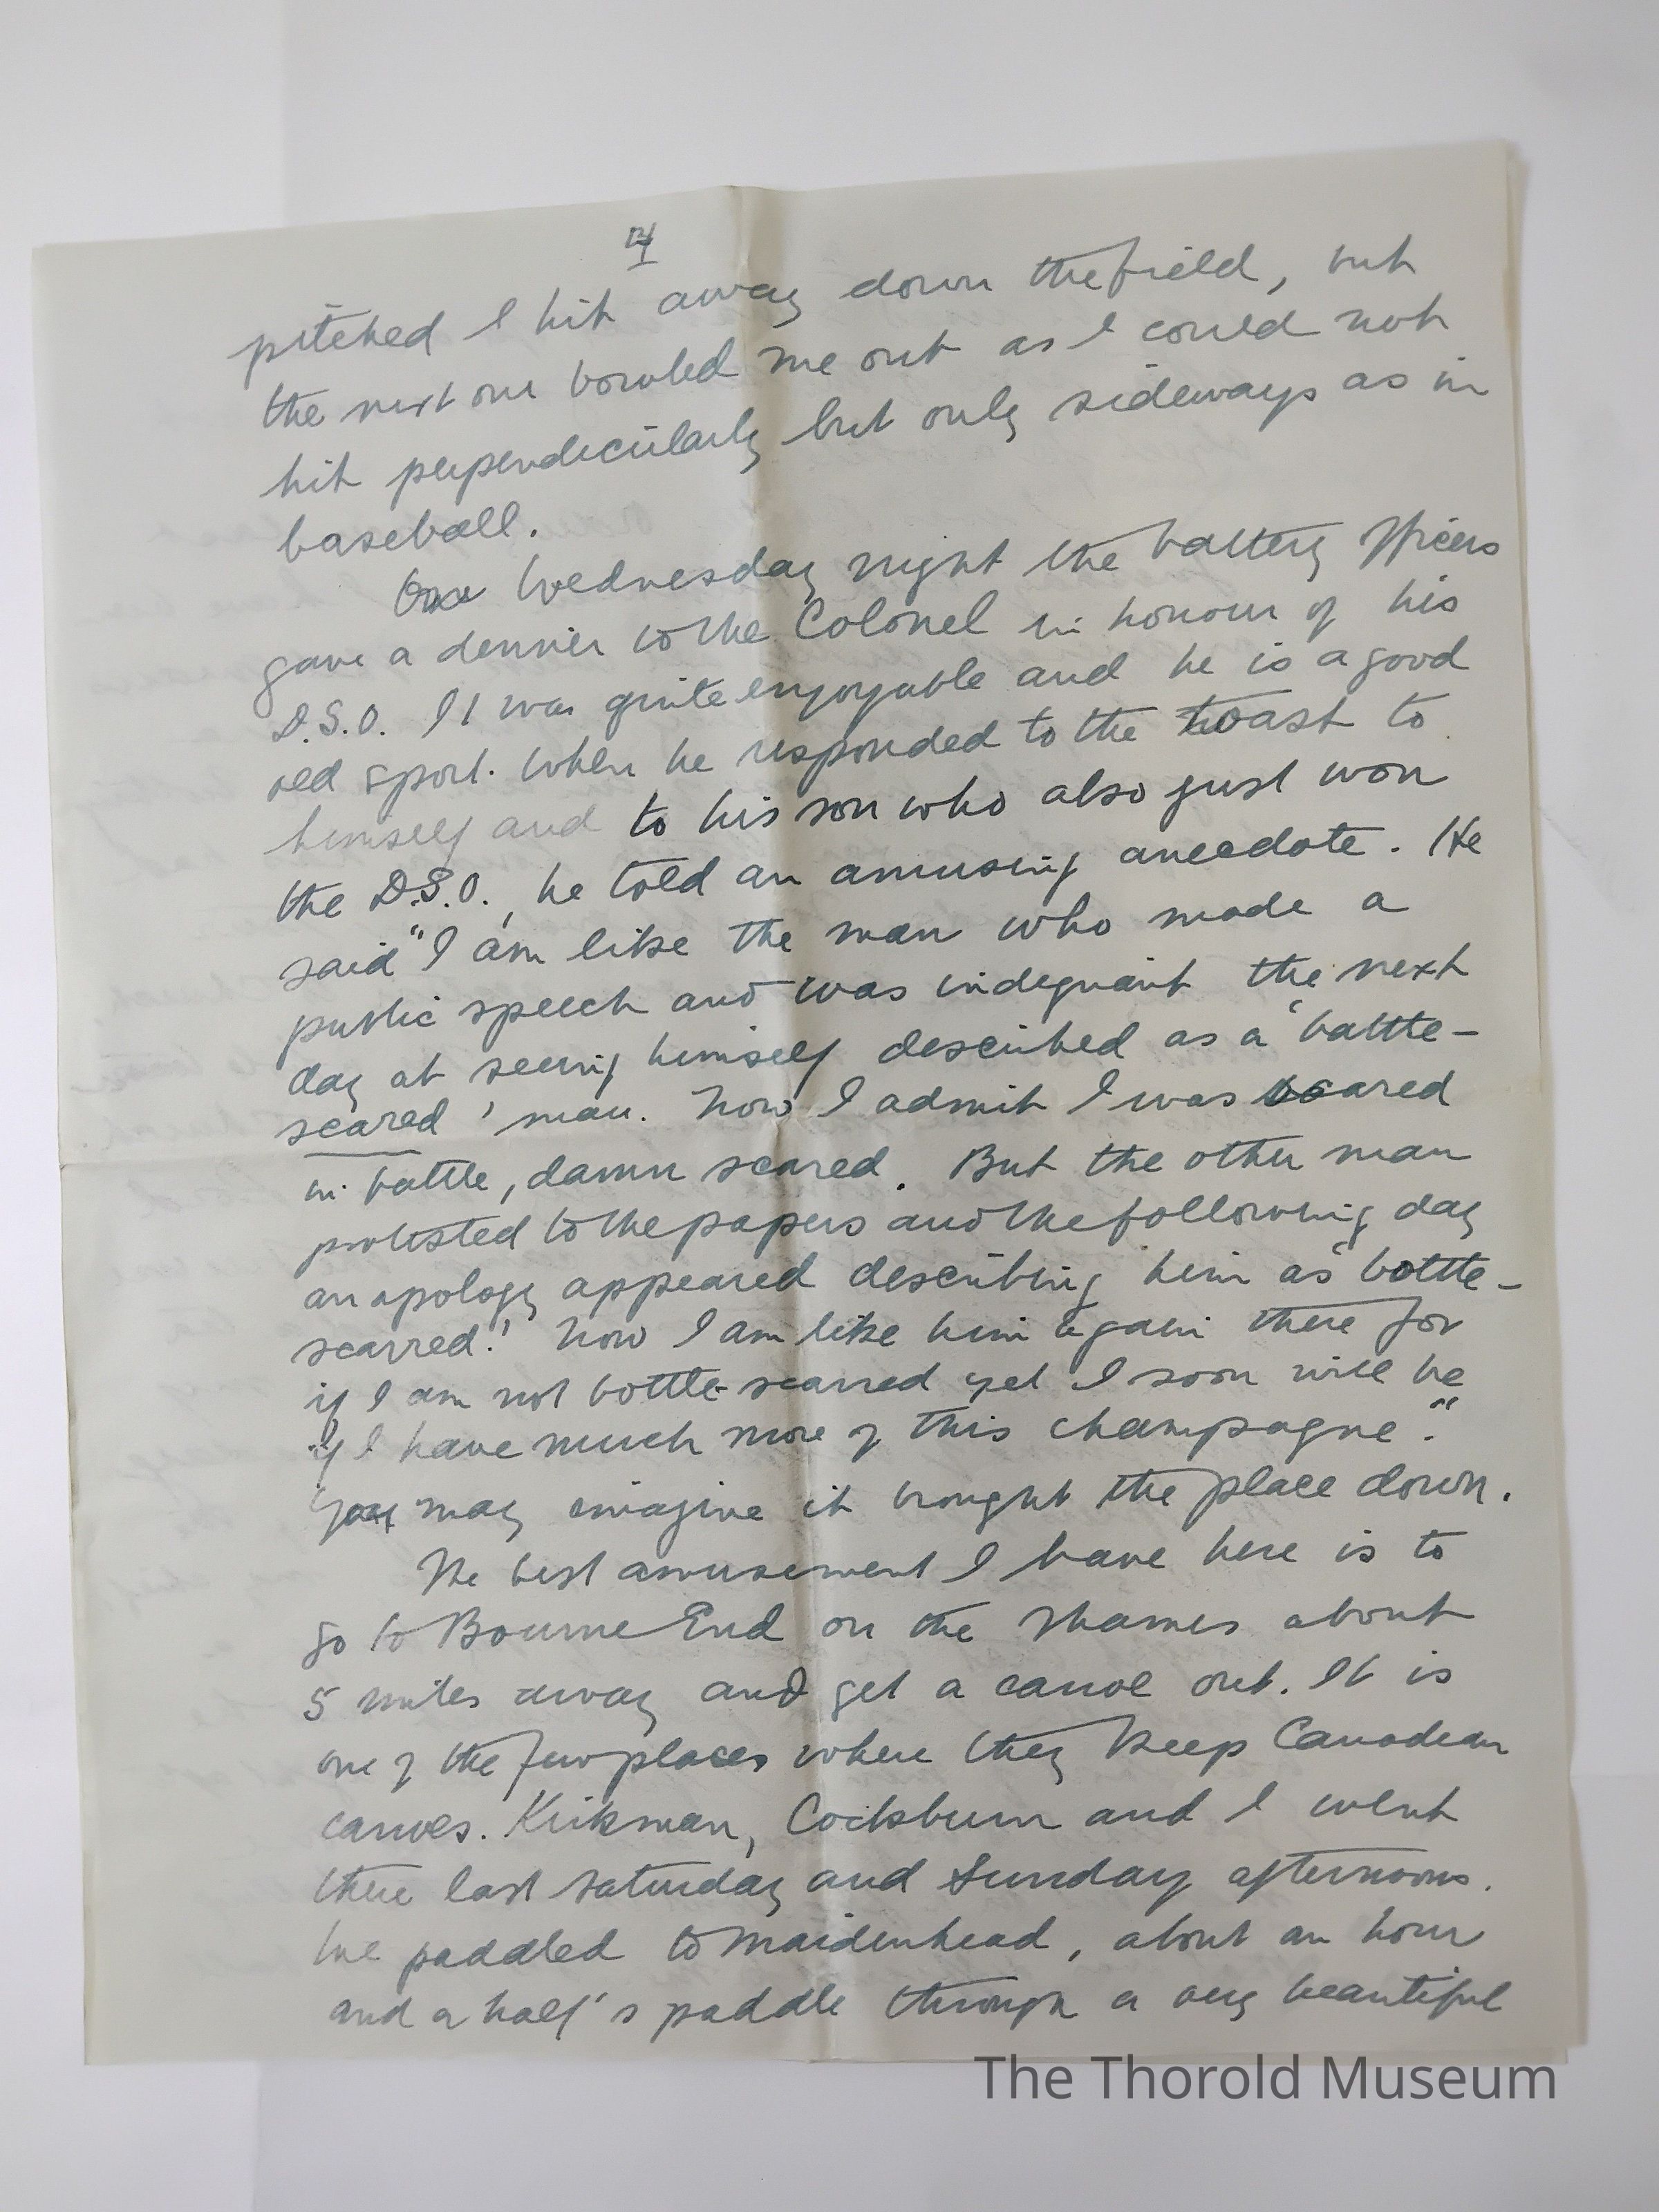 4
pitched I hit away down the field, but
the next one bowled me out as I could not
hit perpendicularly but only sideways as in
baseball.
One Wednesday night the battery officers
gave a dinner to the Colonel in honour of his
D.S.O. It was quite enjoyable and he is a good
old sport. When he responded to the toast to
himself and to his son who also just won
the D.S.O., he told an amusing anecdote. He
said "I am like the man who made a
public speech and was indignant the next
day at seeing himself described as a 'battle-
scared' man. Now I admit I was scared
in battle, damn scared. But the other man
protested to the papers and the following day
an apology appeared describing him as 'bottle-
scarred.' Now I am like him again there for
if I am not bottle-scarred yet I soon will be
if I have much more of this champagne."
You may imagine it brought the place down.
The best amusement I have here is to
go to Bourne End on the Thames about
5 miles away and get a canoe out. It is
one of the few places where they keep Canadian
canoes. Kirkman, Cockburn and I went
there last Saturday and Sunday afternoons.
We paddled to Maidenhead, about an hour
and a half's paddle through a very beautiful
The Thorold Museum